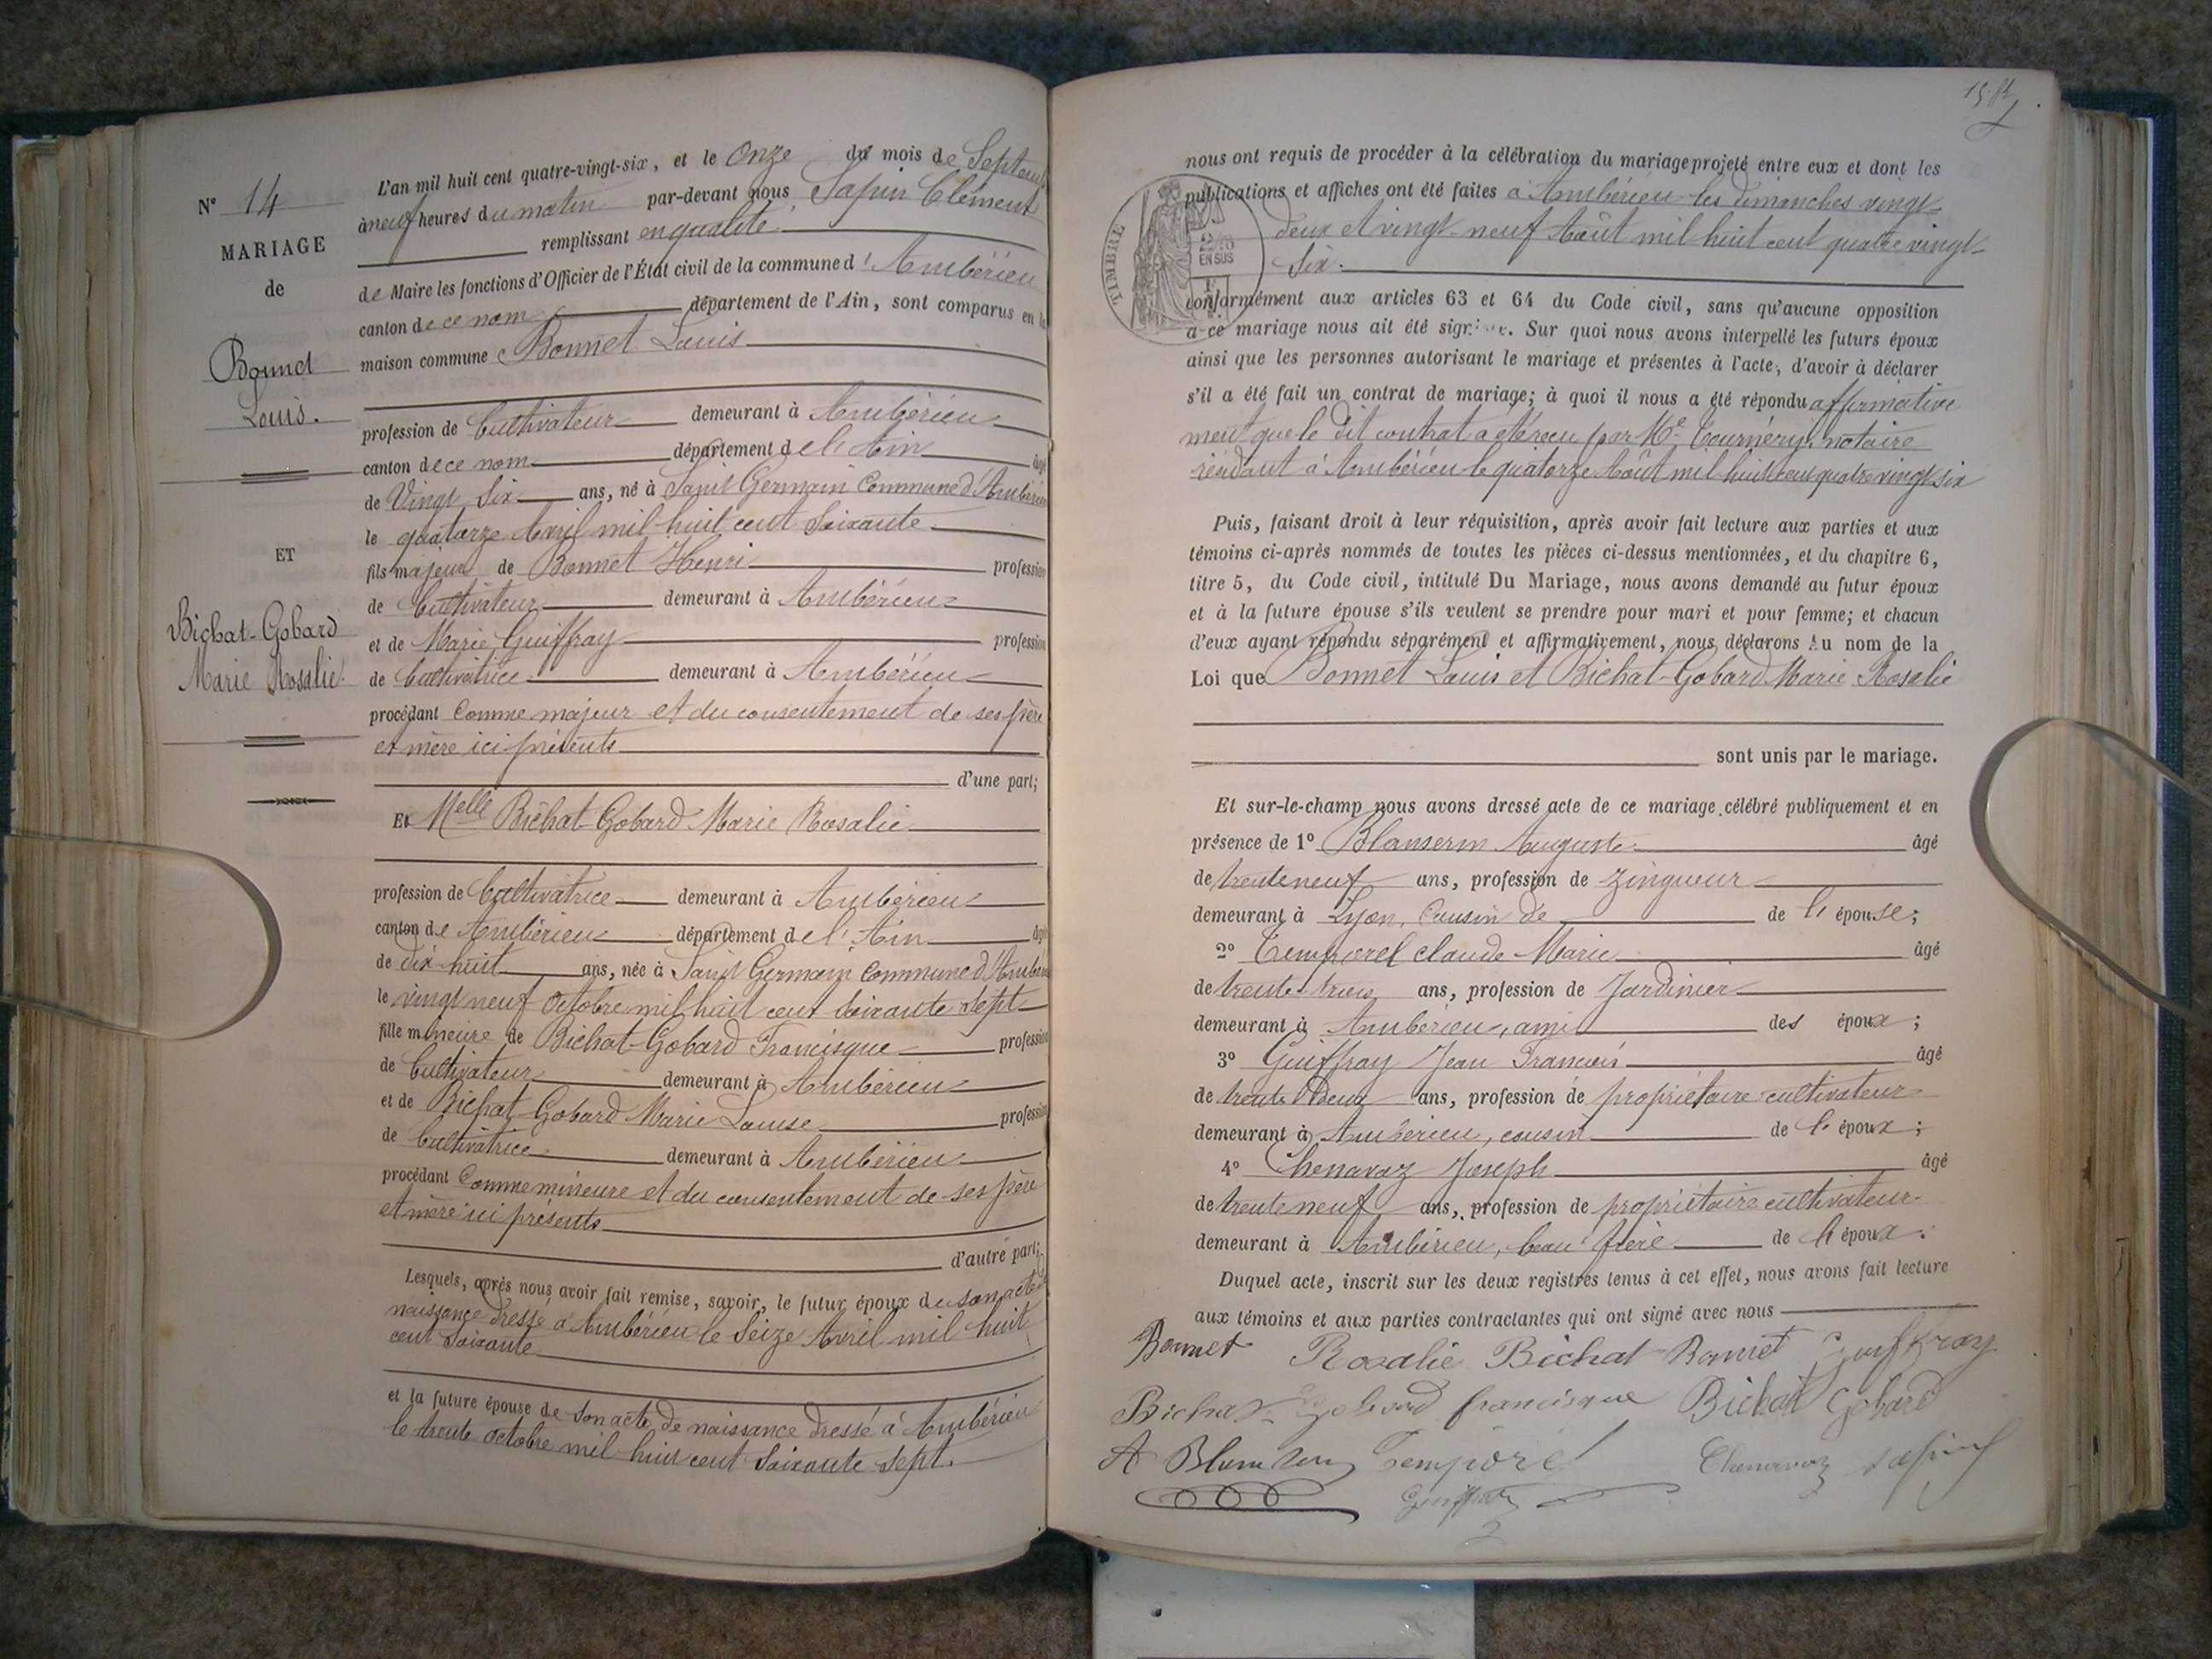 N° 14
MARIAGE
de
Bonnet
Louis.
ET
Bichat-Gobard
Marie Rosalie.
L'an mil huit cent quatre-vingt-six, et le Onze du mois de Septem
à neuf heures du matin par-devant nous Sapin Clément
remplissant en qualité
de Maire les fonctions d'Officier de l'État civil de la commune d'Ambérieu
canton de ce nom département de l'Ain, sont comparus en la
maison commune Bonnet Louis
profession de Cultivateur demeurant à Ambérieu
canton de ce nom département de l'Ain âgé
de Vingt Six ans, né à Saint Germain Commune d'Ambérieu
le quatorze Avril mil huit cent Soixante
fils majeur de Bonnet Henri profession
de Cultivateur demeurant à Ambérieu
et de Marie Guiffray profession
de Cultivatrice demeurant à Ambérieu
procédant Comme majeur et du consentement de ses père
et mère ici présents
d'une part;
Et Melle Bichat-Gobard Marie Rosalie
profession de Cultivatrice demeurant à Ambérieu
canton de Ambérieu département de l'Ain âgé
de dix huit ans, née à Saint Germain Commune d'Ambérieu
le vingt neuf Octobre mil huit cent soixante sept
fille mineure de Bichat-Gobard Francisque profession
de Cultivateur demeurant à Ambérieu
et de Bichat Gobard Marie Louise profession
de Cultivatrice demeurant à Ambérieu
procédant Comme mineure et du consentement de ses père
et mère ici présents
d'autre part;
Lesquels, après nous avoir fait remise, savoir, le futur époux de son acte de
naissance dressé à Ambérieu le Seize Avril mil huit
cent Soixante
et la future épouse de son acte de naissance dressé à Ambérieu
le trente octobre mil huit cent Soixante Sept.
nous ont requis de procéder à la célébration du mariage projeté entre eux et dont les
publications et affiches ont été faites à Ambérieu les dimanches vingt-
deux et vingt-neuf Août mil huit cent quatre vingt-
six.
TIMBRE
EN SUS
conformément aux articles 63 et 64 du Code civil, sans qu'aucune opposition
à ce mariage nous ait été signifiée. Sur quoi nous avons interpellé les futurs époux
ainsi que les personnes autorisant le mariage et présentes à l'acte, d'avoir à déclarer
s'il a été fait un contrat de mariage; à quoi il nous a été répondu affirmative
ment que le dit contrat a été recu par Me Tournéry, notaire
résidant à Ambérieu le quatorze Août mil huit cent quatre vingt six
Puis, faisant droit à leur réquisition, après avoir fait lecture aux parties et aux
témoins ci-après nommés de toutes les pièces ci-dessus mentionnées, et du chapitre 6,
titre 5, du Code civil, intitulé Du Mariage, nous avons demandé au futur époux
et à la future épouse s'ils veulent se prendre pour mari et pour femme; et chacun
d'eux ayant répondu séparément et affirmativement, nous déclarons au nom de la
Loi que Bonnet Louis et Bichat-Gobard Marie Rosalie
sont unis par le mariage.
Et sur-le-champ nous avons dressé acte de ce mariage célébré publiquement et en
présence de 1° Blanserin Auguste âgé
de trente neuf ans, profession de zingueur
demeurant à Lyon, Cousin de de l'épouse;
2° Temporel Claude Marie âgé
de trente trois ans, profession de Jardinier
demeurant à Ambérieu, ami des époux;
3° Guiffray Jean Francois âgé
de trente Deux ans, profession de propriétaire cultivateur
demeurant à Ambérieu, cousin de l'époux;
4° Chenavaz Joseph âgé
de trente neuf ans, profession de propriétaire cultivateur
demeurant à Ambérieu, beau frère de l'époux.
Duquel acte, inscrit sur les deux registres tenus à cet effet, nous avons fait lecture
aux témoins et aux parties contractantes qui ont signé avec nous
Bonnet Rosalie Bichat Bonnet Guiffray
Bichat Gobard francisque Bichat Gobard
A Blanserin Temporel Chenavaz Sapin
Guiffray